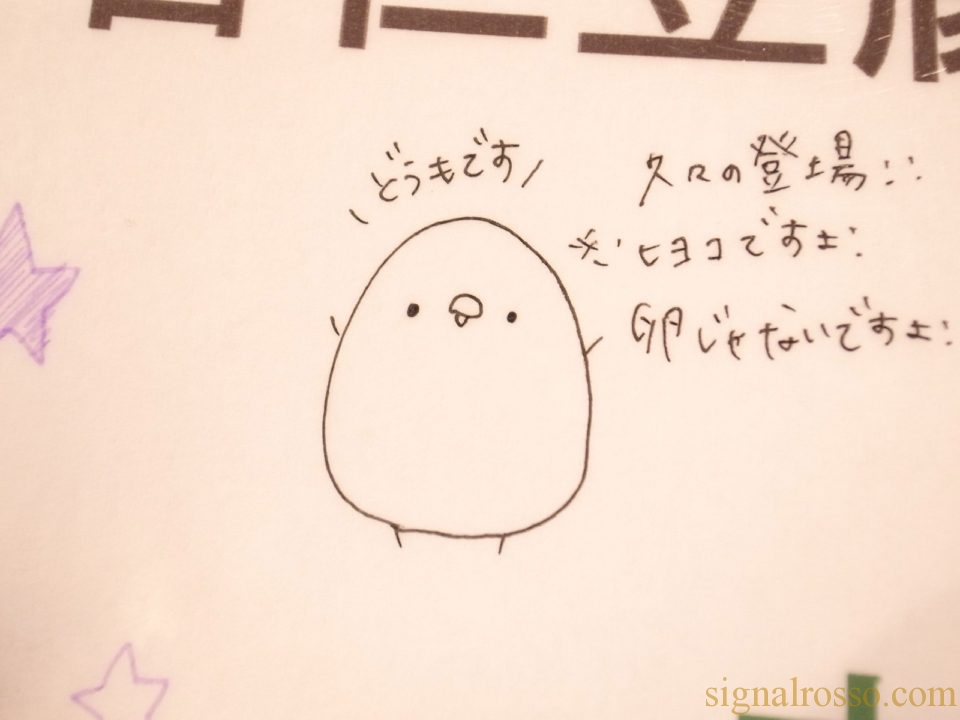 杏仁豆腐
どうもです
久々の登場!!
※ヒヨコですよ!
卵じゃないですよ!
signalrosso.com